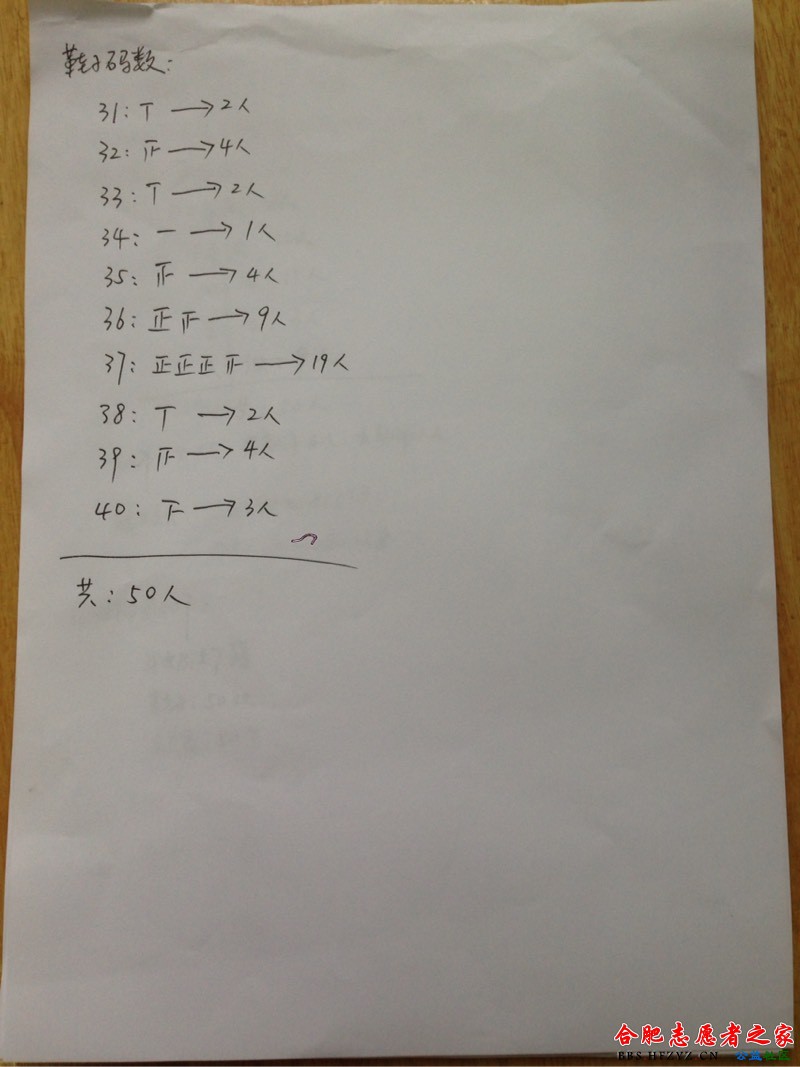 鞋子码数:
31: 丅 → 2人
32: 正 → 4人
33: 丅 → 2人
34: 一 → 1人
35: 正 → 4人
36: 正正 → 9人
37: 正正正正 → 19人
38: 丅 → 2人
39: 正 → 4人
40: 下 → 3人
共: 50人
合肥志愿者之家
BBS.HFZYZ.CN 公益社区